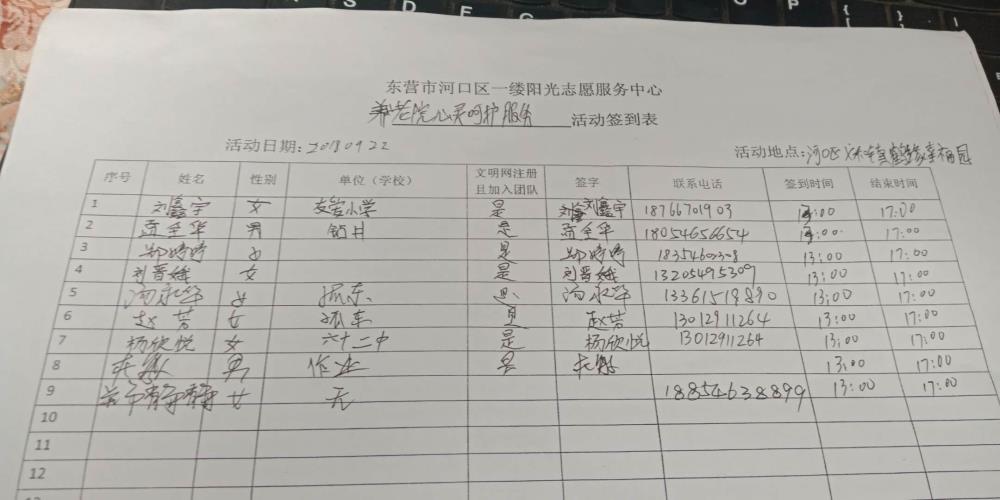 东营市河口区一缕阳光志愿服务中心
养老院心灵呵护服务 活动签到表
活动日期: 20180922 活动地点: 河口区
序号 姓名 性别 单位（学校） 文明网注册且加入团队 签字 联系电话 签到时间 结束时间
1 刘鑫宇 女 友爱小学 是 刘鑫宇 18766701903 13:00 17:00
2 孟全华 男 钻井 是 孟全华 18054656654 13:00 17:00
3 郑婷婷 女 是 郑婷婷 13:00 17:00
4 刘晋娥 女 是 刘晋娥 13205495309 13:00 17:00
5 汤永华 女 孤东 是 汤永华 13361519890 13:00 17:00
6 赵芳 女 孤东 是 赵芳 13012911264 13:00 17:00
7 杨欣悦 女 六十二中 是 杨欣悦 13012911264 13:00 17:00
8 男 作业 是 13:00 17:00
9 女 无 18854638899 13:00 17:00
10
11
12